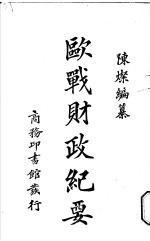 陳燦編纂
歐戰財政紀要
商務印書館發行